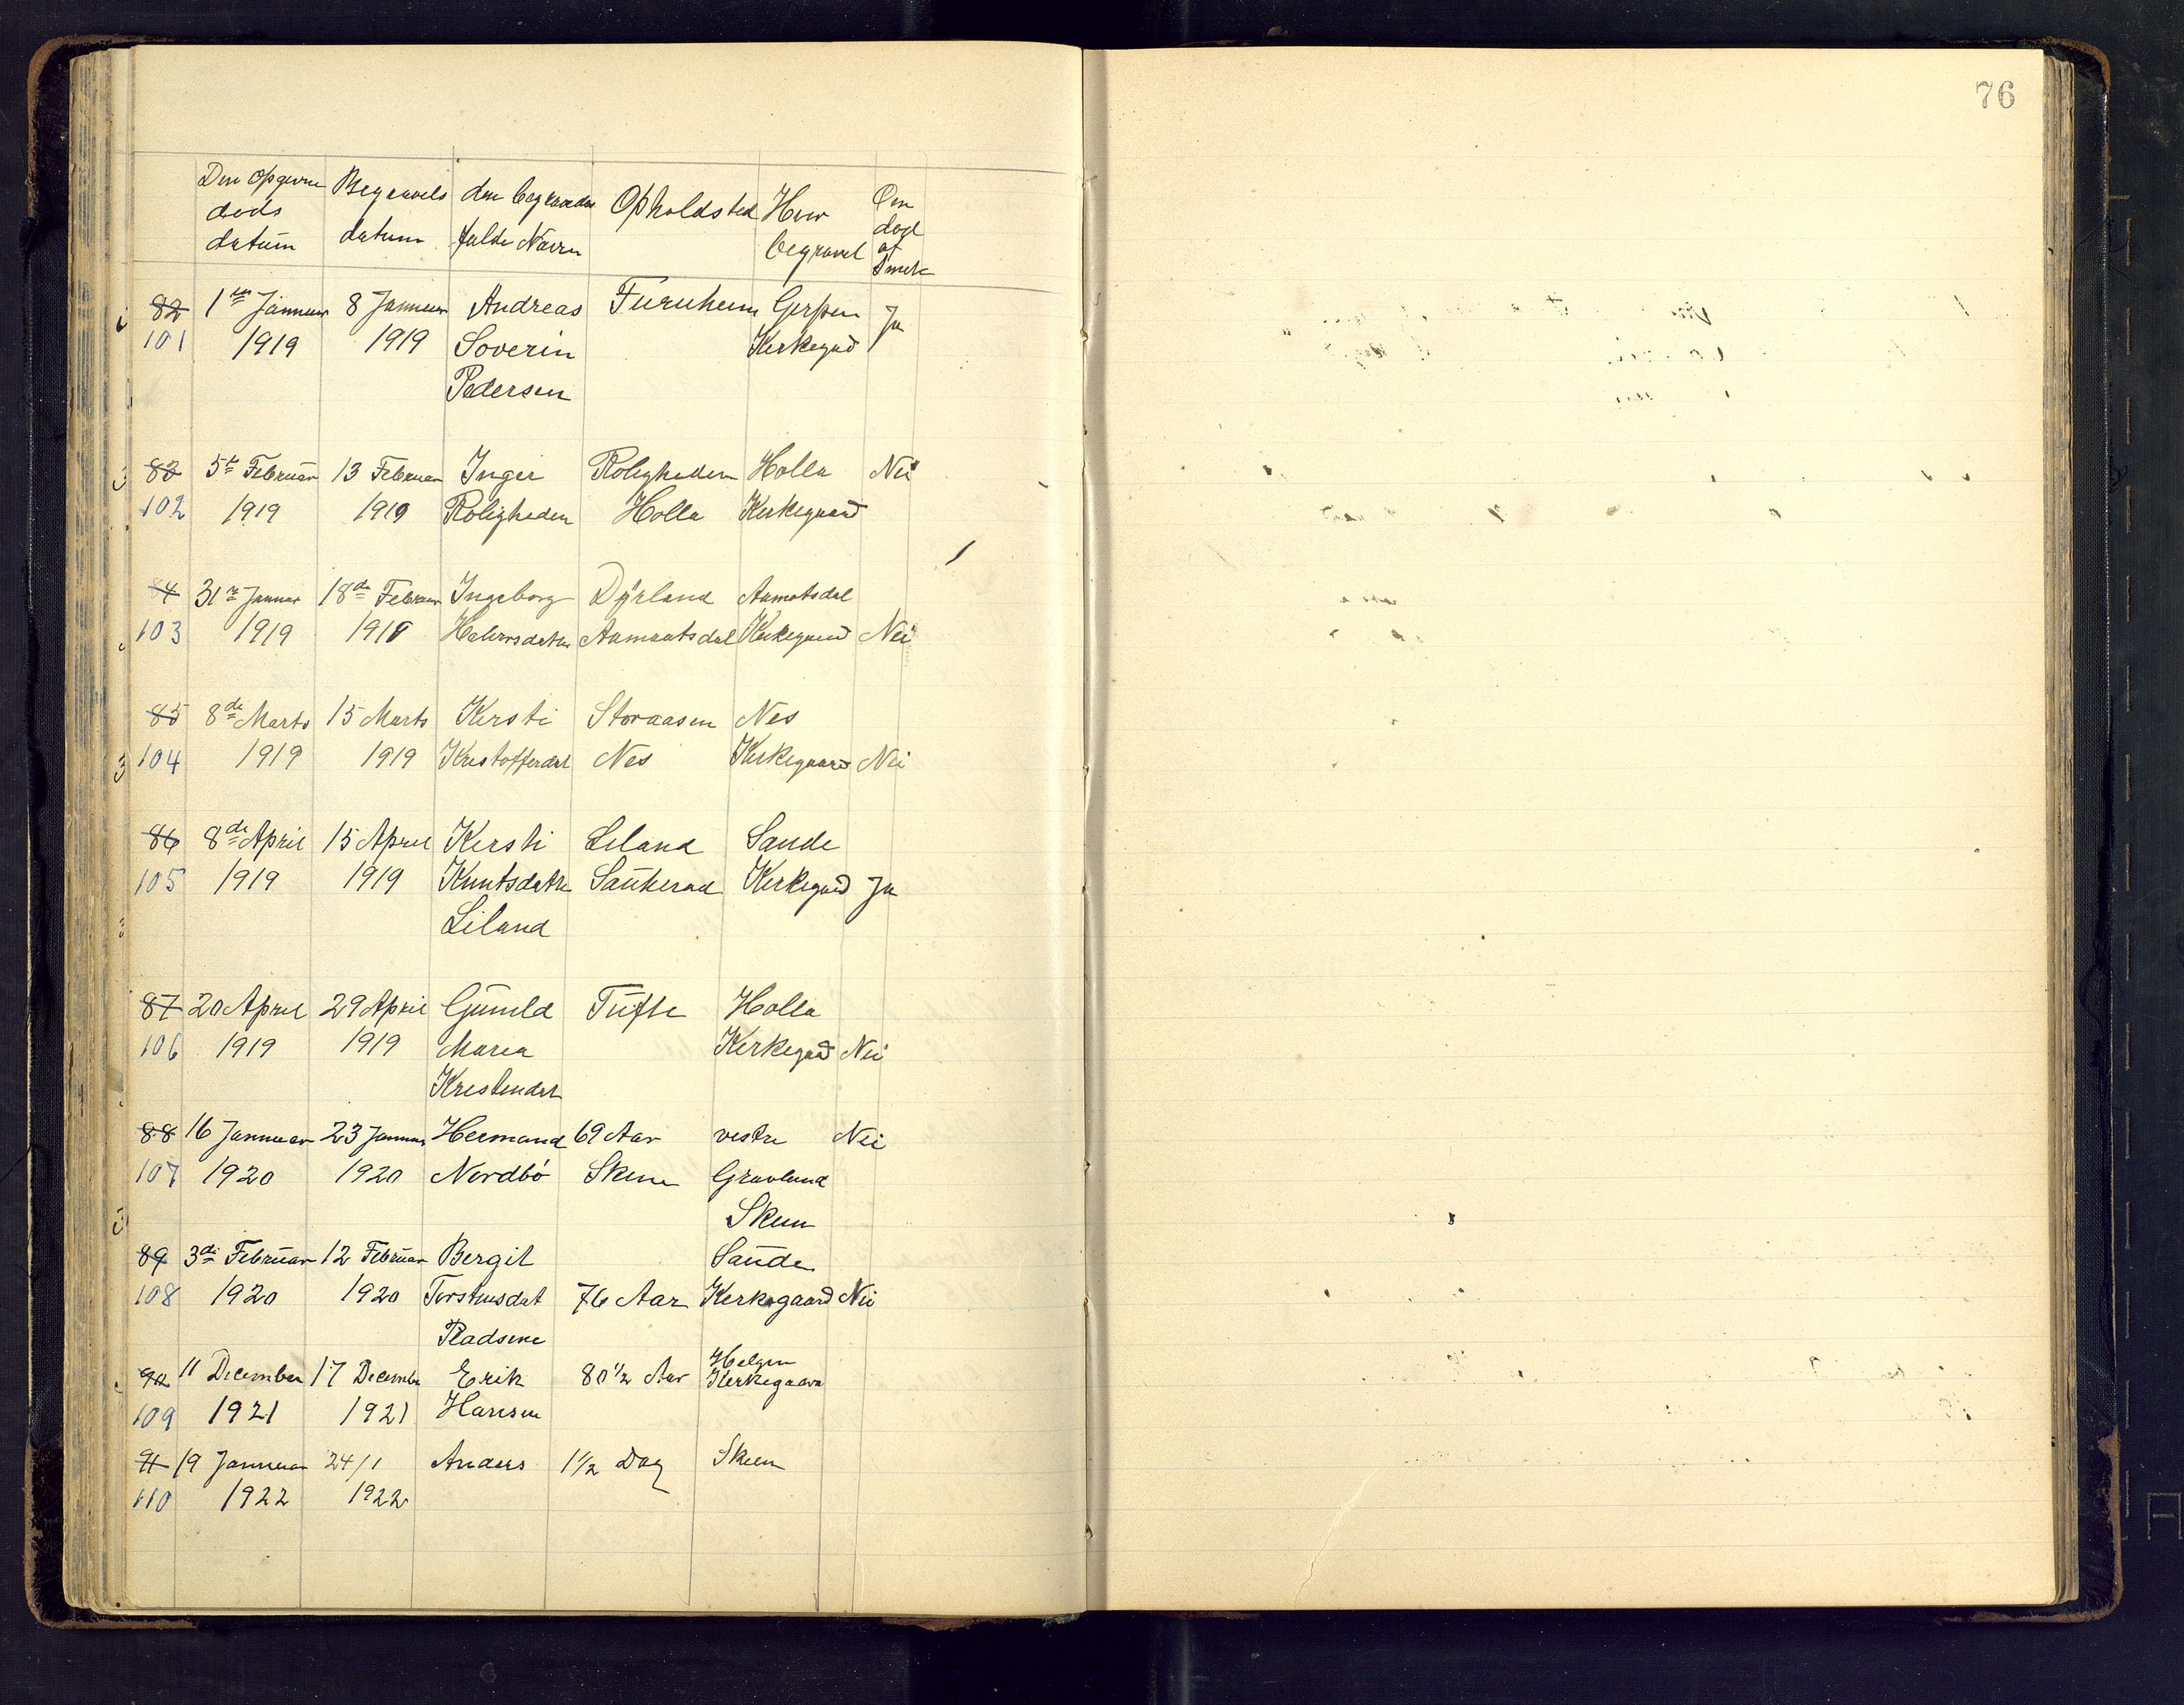 76
Den Opgivne Begravels den begravedes Opholdsted Hvor Om
döds datum fulde Navn begravet død
datum af
Smek
82 1ste Januar 8 Januar Andreas Furuheim Gerpen Ja
101 1919 1919 Soverin Kerkegaad
Pedersen
83 5te Februar 13 Februar Inger Roligheden Holla Nei
102 1919 1919 Roligheden Holla Kerkegaard
84 31te Januar 18de Februar Ingeborg Dyrland Aamotsdal
103 1919 1918 Halvorsdatter Aamaatsdal Kerkegaard Nei
85 8de Marts 15 Marts Kersti Storaasen Nes
104 1919 1919 Kristofferdat Nes Kerkegaard Nei
86 8de April 15 April Kersti Leland Sande
105 1919 1919 Knutsdatter Sauherad Kerkegaard Ja
Liland
87 20 April 29 April Gunild Tufte Holla
106 1919 1919 Maria Kerkegaad Nei
Kristendat
88 16 Januar 23 Januar Hermand 69 Aar vestre Nei
107 1920 1920 Nordbø Skien Gravlund
Skien
89 3de Februar 12 Februar Bergit Saude
108 1920 1920 Torstensdat 76 Aar Kerkegaard Nei
90 11 December 17 December Erik 80 1/2 Aar Helgen
Kerkegaard
109 1921 1921 Hansen
91 19 Januar 24/1 Anders 1 1/2 Dag Skien
110 1922 1922